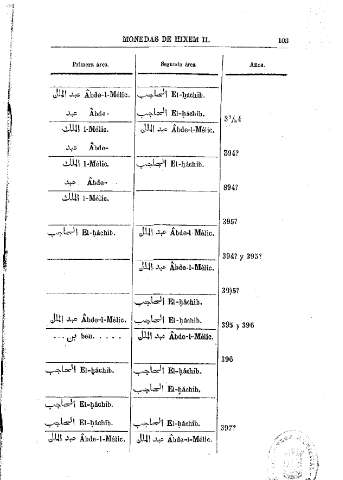 MONEDAS DE HIXEM II. 103
Primera área. Segunda área Años.
عبد الملك Âbde-l-Mélic. الحاجب El-ḥáchib.
عبد Âbde- الحاجب El-ḥáchib.
الملك l-Mélic. عبد الملك Âbde-l-Mélic.
عبد Âbde- 394?
الملك l-Mélic. الحاجب El-ḥáchib.
عبد Âbde- 394?
الملك l-Mélic.
395?
الحاجب El-ḥáchib. عبد الملك Âbde-l-Mélic.
394? y 395?
عبد الملك Âbde-l-Mélic.
395?
الحاجب El-ḥáchib.
عبد الملك Âbde-l-Mélic. الحاجب El-ḥáchib. 395 y 396
...بن ben..... عبد الملك Âbde-l-Mélic.
الحاجب El-ḥáchib.
الحاجب El-ḥáchib.
الحاجب El-ḥáchib. الحاجب El-ḥáchib.
الحاجب El-ḥáchib. 397?
عبد الملك Âbde-l-Mélic. عبد الملك Âbde-l-Mélic.